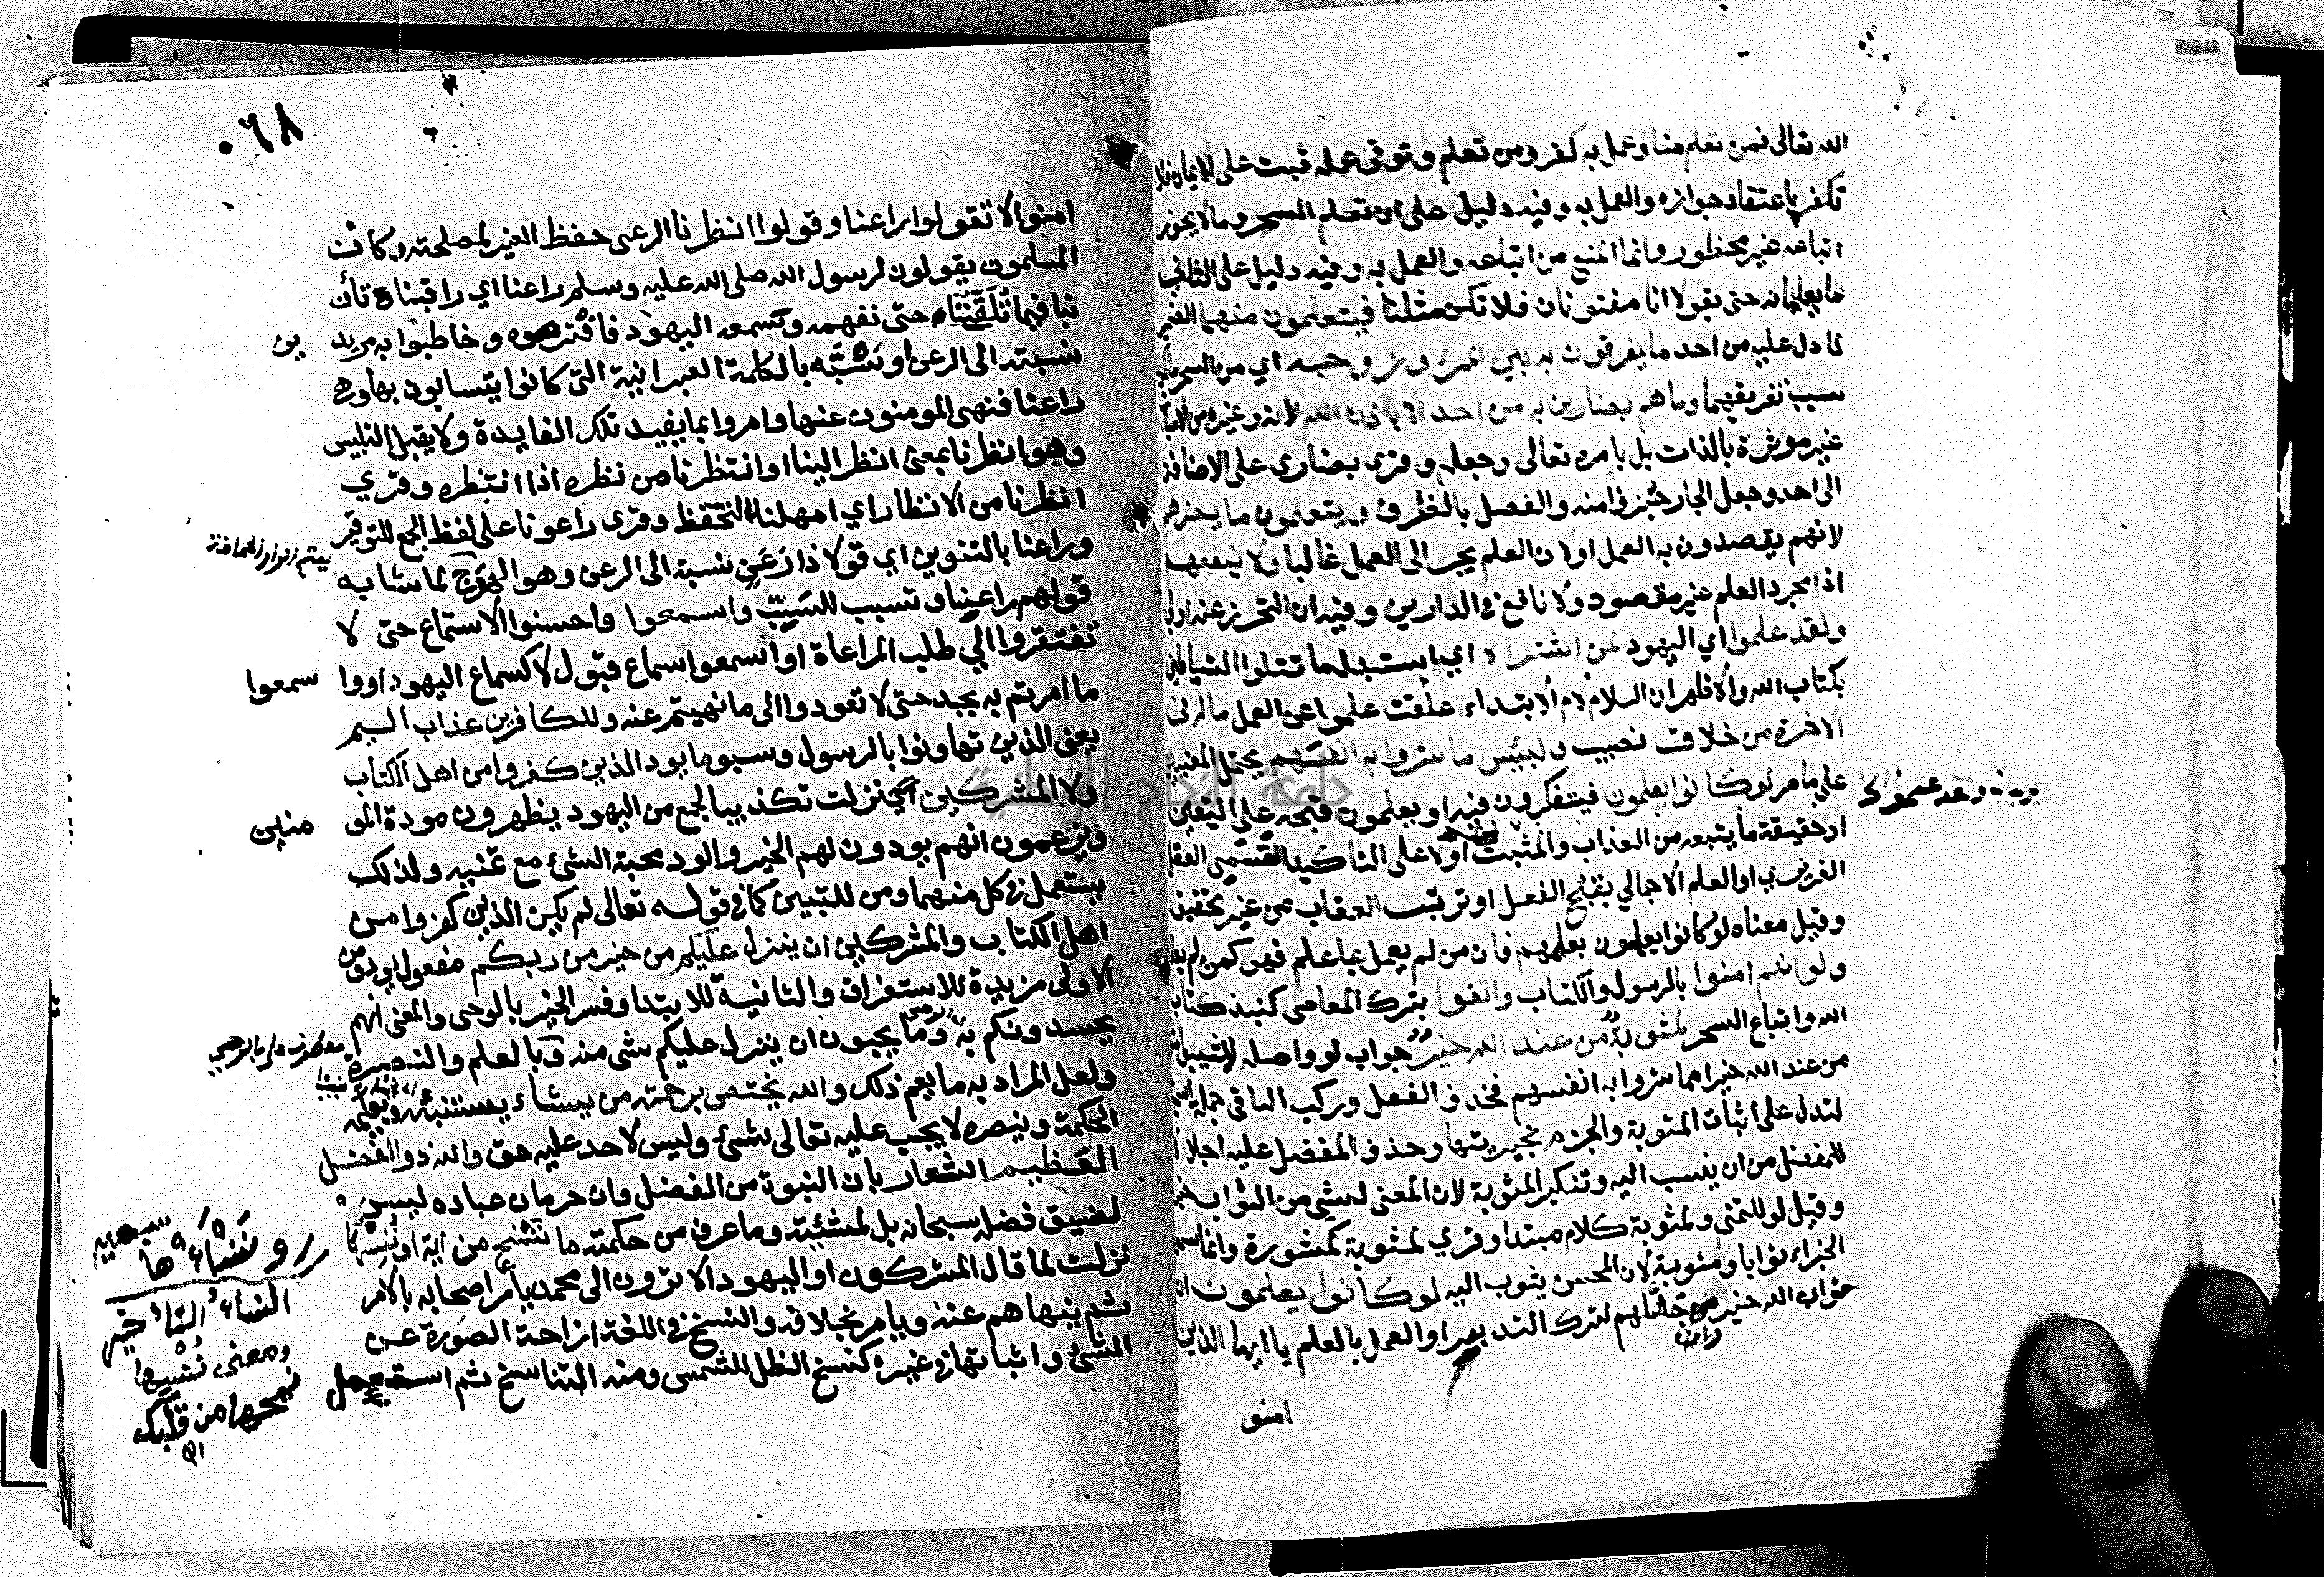 الله تعالى فمن تعلم منا وعمل به كفر ومن تعلم وتوقى عمله ثبت على الايمان فلا
تكفر باعتقاد جوازه والعمل به وفيه دليل على ان تعلم السحر وما لا يجوز
اتباعه غير محظور وانما المنع من اتباعه والعمل به وفيه دليل على الثاني
ما يعلمانه حتى يقولا انا مفتونان فلا تكن مثلنا فيتعلمون منهما الضمير
لما دل عليه من احد ما يفرقون به بين المرء وزوجه اي من السحر ما يكون
سبب تفريقهما وما هم بضارين به من احد الا باذن الله لانه وغيره من الاسباب
غير موثرة بالذات بل بامره تعالى وجعله وقرى بضارى على الاضافة
الى احد وجعل الجار جزء منه والفصل بالظرف ويتعلمون ما يضرهم
لانهم يقصدون به العمل اولان العلم يجر الى العمل غالبا ولا ينفعهم
اذ مجرد العلم غير مقصود ولا نافع في الدارين وفيه ان التحرز عنه اولى
ولقد علموا اي اليهود لمن اشتراه اي استبدل ما تتلوا الشياطين
بكتاب الله والاظهر ان اللام لام الابتداء علقت علموا عن العمل ماله في
الاخرة من خلاق نصيب ولبئس ما شروا به انفسهم يحتمل المعنيين
على ما مر لو كانوا يعلمون فيتفكرون فيه او يعلمون قبحه على اليقين
او حقيقة ما يتبعه من العذاب والمثبت اولا على التاكيد القسمي العقل
الغريزي او العلم الاجمالي بقبح الفعل او ترتب العقاب من غير تحقيق
وقيل معناه لو كانوا يعلمون بعلمهم فان من لم يعمل بما علم فهو كمن لم يعلم
ولو انهم امنوا بالرسول والكتاب واتقوا بترك المعاصى كنبذ كتاب
الله واتباع السحر لمثوبة من عند الله خير جواب لو واصله لاثيبوا مثوبة
من عند الله خيرا مما شروا به انفسهم فحذف الفعل وركب الباقي جملة اسمية
لتدل على اثبات المثوبة والجزم بخيريتها وحذف المفضل عليه اجلالا
للمفضل من ان ينسب اليه وتنكير المثوبة لان المعنى لشى من الثواب خير
وقيل لو للتمنى ولمثوبة كلام مبتدا وقرى لمثوبة كمشورة وانما سمى
الجزاء ثوابا ومثوبة لان المحسن يثوب اليه لو كانوا يعلمون ان
ثواب الله خير جهلهم لترك التدبر او العمل بالعلم يا ايها الذين
امنو
٠٦٨
امنوا لا تقولوا راعنا وقولوا انظرنا الرعى حفظ الغير لمصلحته وكانت
المسلمون يقولون لرسول الله صلى الله عليه وسلم راعنا اي راقبنا وتأن
بنا فيما تلقننا حتى نفهمه وتسمعه اليهود فافترصوه وخاطبوا به مريد
ين
نسبته الى الرعن او نشبه بالكلمة العبرانية التى كانوا يتسابون بها وهي
راعنا فنهى المومنون عنها وامروا بما يفيد تلك الفايدة ولا يقبل التلبيس
وهو انظرنا بمعنى انظر الينا او انتظرنا من نظره اذا انتظره وقري
انظرنا من الانظار اي امهلنا لنتحفظ وقرى راعونا على لفظ الجمع للتوقير
وراعنا بالتنوين اي قولا ذا رعن نسبة الى الرعن وهو الهوج لما شابه
قولهم راعينا وتسبب للسب واسمعوا واحسنوا الاستماع حتى لا
تفتقروا الي طلب المراعاة او اسمعوا سماع قبول لا كسماع اليهود او وا
سمعوا
ما امرتم به بجد حتى لا تعودوا الى ما نهيتم عنه وللكافرين عذاب اليم
يعنى الذين تهاونوا بالرسول وسبوه ما يود الذين كفروا من اهل الكتاب
ولا المشركين نزلت تكذيبا لجمع من اليهود يظهرون مودة المو
منين
ويزعمون انهم يودون لهم الخير والود محبة الشئ مع تمنيه ولذلك
يستعمل في كل منهما ومن للتبيين كما في قوله تعالى لم يكن الذين كفروا من
اهل الكتاب والمشركين ان ينزل عليكم من خير من ربكم مفعول يود ومن
الاولى مزيدة للاستغراق والثانية للابتدا وفسر الخير بالوحى والمعنى انهم
يحسدونكم به وما يحبون ان ينزل عليكم شى منه وبالعلم والنصرة
ولعل المراد به ما يعم ذلك والله يختص برحمته من يشاء يستنبئه ويعلمه
الحكمة وينصره لا يجب عليه تعالى شئ وليس لاحد عليه حق والله ذو الفضل
العظيم اشعار بان النبوة من الفضل وان حرمان عباده ليس
لضيق فضل سبحانه بل لمشيئته وما عرف من حكمته ما ننسخ من اية او ننسها
نزلت لما قال المشركون او اليهود الا ترون الى محمد يأمر اصحابه بالامر
ثم ينهاهم عنه ويامر بخلافه والنسخ في اللغة ازاحة الصورة عن
الشئ واثباتها في غيره كنسخ الظل للشمس ومنه التناسخ ثم استعمل
ومعنى ننسها
نمحها من قلبك